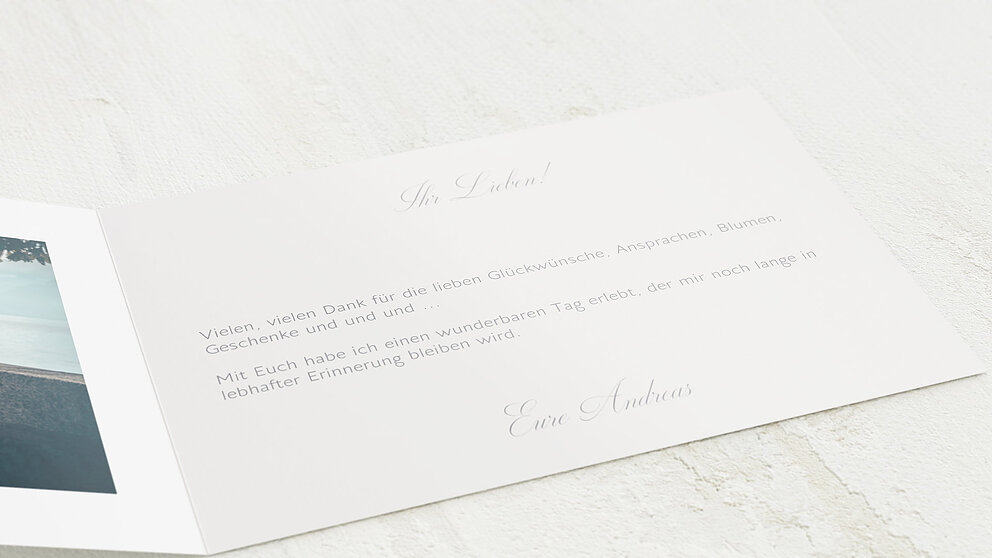 Ihr Lieben!
Vielen, vielen Dank für die lieben Glückwünsche, Ansprachen, Blumen,
Geschenke und und und ...
Mit Euch habe ich einen wunderbaren Tag erlebt, der mir noch lange in
lebhafter Erinnerung bleiben wird.
Eure Andreas